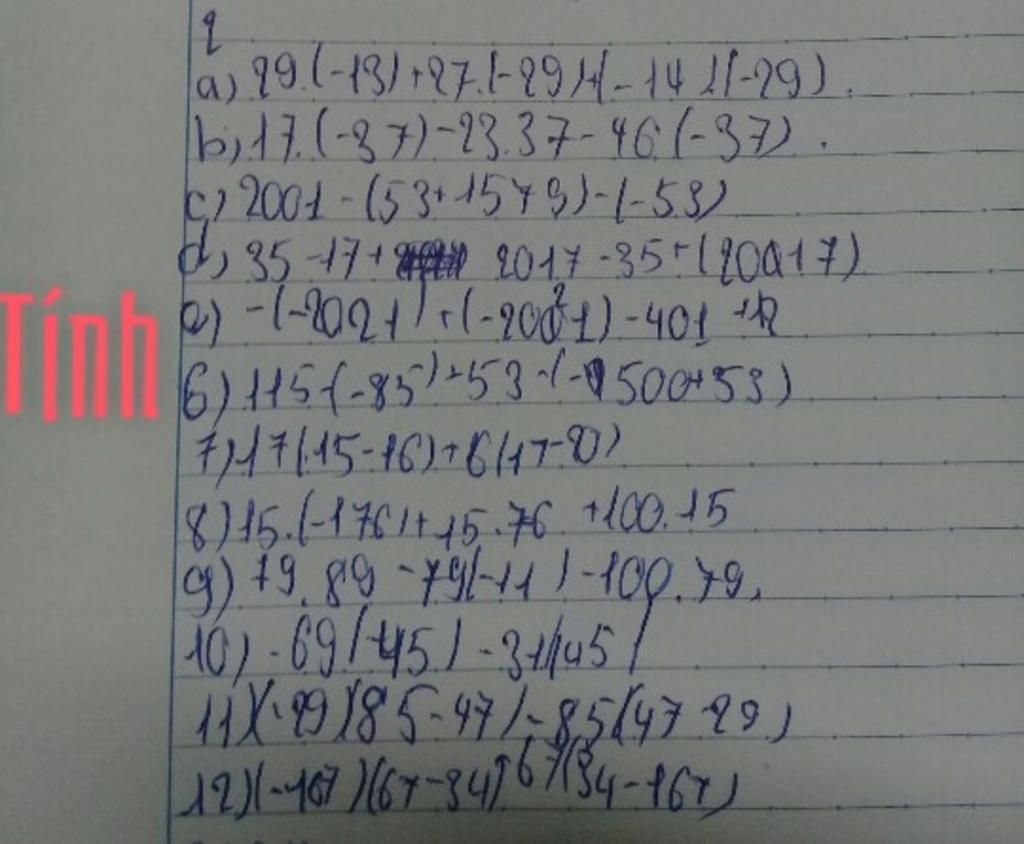 a) 29.(-13)+27.(-29)+(-14).(-29).
b) 17.(-37)-23.37-46.(-37).
c) 2001-(53+1579)-(-53)
d) 35-17+ 2017-35+(20017)
e) -(-2021)+(-2021)-401+12
Tính
6) 115-(-85)+53-(-500+53)
7) 17(15-16)+16(17-20)
8) 15.(-176)+15.76 +100.15
9) 79.89-79(-11)-100.79.
10) -69(-45)-31(45)
11) (-29)(85-47)-85(47-29)
12) (-167)(67-34)+67(34-167)